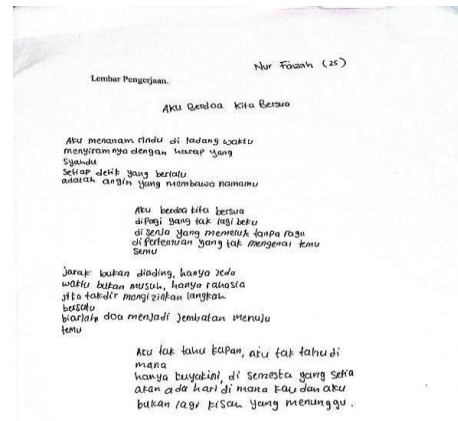 Nur Faizah (25)
Lembar Pengerjaan.
Aku Berdoa Kita Bersua
Aku menanam rindu di ladang waktu
menyiramnya dengan harap yang
syahdu
Setiap detik yang berlalu
adalah angin yang membawa namamu
Aku berdoa kita bersua
dipagi yang tak lagi beku
di senja yang memeluk tanpa ragu
di pertemuan yang tak mengenal temu
semu
Jarak bukan dinding, hanya jeda
waktu bukan musuh, hanya rahasia
jika takdir mengizinkan langkah
bersatu
biarlah doa menjadi jembatan menuju
temu
Aku tak tahu kapan, aku tak tahu di
mana
hanya kuyakini, di semesta yang setia
akan ada hari di mana kau dan aku
bukan lagi kisah yang menunggu.